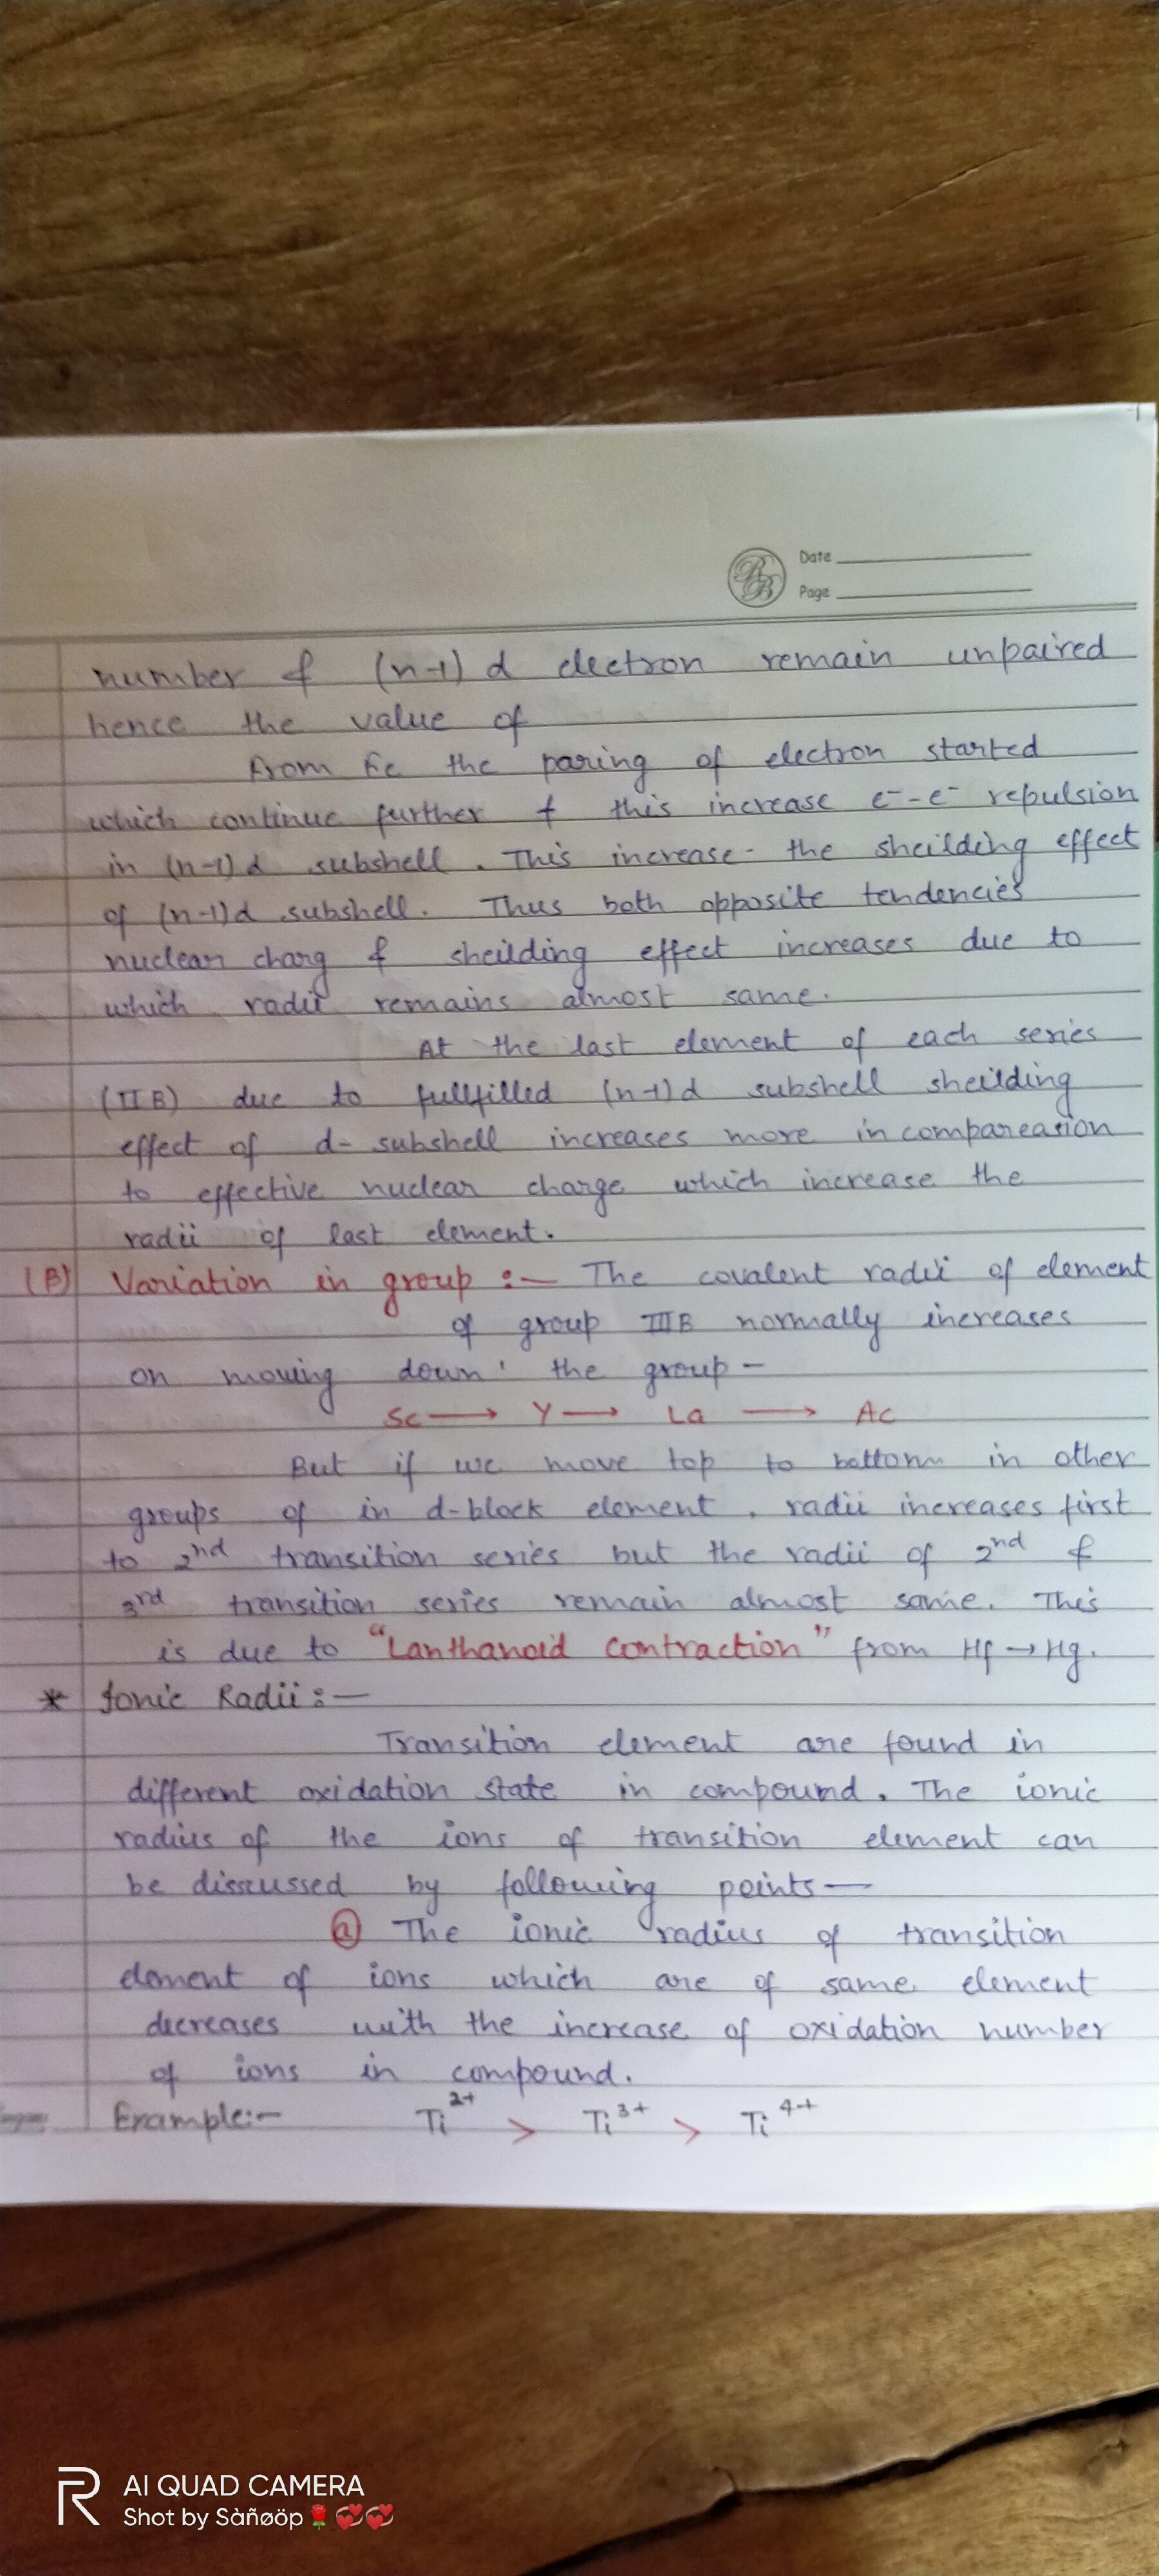 Date
Page
number & (n-1) d electron remain unpaired
hence the value of
From Fe the paring of electron started
which continue further & this increase e⁻-e⁻ repulsion
in (n-1)d subshell. This increase the sheilding effect
of (n-1)d subshell. Thus both opposite tendencies
nuclear charg & sheilding effect increases due to
which radii remains almost same.
At the last element of each series
(II B) due to fullfilled (n-1)d subshell sheilding
effect of d- subshell increases more in compareasion
to effective nuclear charge which increase the
radii of last element.
(B) Variation in group :- The covalent radii of element
of group III B normally increases
on moving down the group -
Sc → Y → La → Ac
But if we move top to bottom in other
groups of in d-block element, radii increases first
to 2nd transition series but the radii of 2nd &
3rd transition series remain almost same. This
is due to "Lanthanoid Contraction" from Hf → Hg.
* Ionic Radii :-
Transition element are found in
different oxidation state in compound. The ionic
radius of the ions of transition element can
be disscussed by following points-
(a) The ionic radius of transition
element of ions which are of same element
decreases with the increase of oxidation number
of ions in compound.
Example:- Ti²⁺ > Ti³⁺ > Ti⁴⁺
R AI QUAD CAMERA
Shot by Sàñøöp🌹💞💞